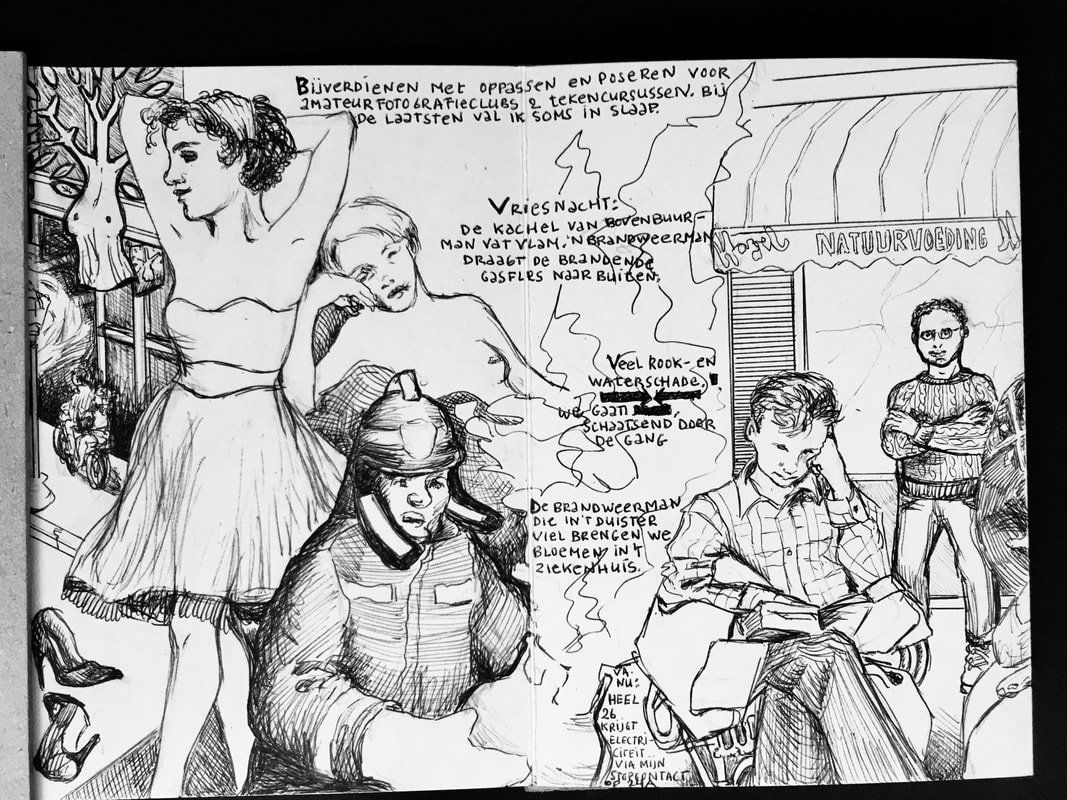 Bijverdienen met oppassen en poseren voor
amateurfotografieclubs & tekencursussen. Bij
de laatsten val ik soms in slaap.
Vriesnacht:
de kachel van bovenbuur-
man vat vlam. 'n Brandweerman
draagt de brandende
gasfles naar buiten.
Hazel NATUURVOEDING
Veel rook- en
waterschade,
we gaan
schaatsend door
de gang
De brandweerman
die in 't duister
viel brengen we
bloemen in 't
ziekenhuis.
VA.
NU:
HEEL
26
KRIJGT
ELECTRI-
CITEIT
VIA MIJN
STOPCONTACT
OP 24A